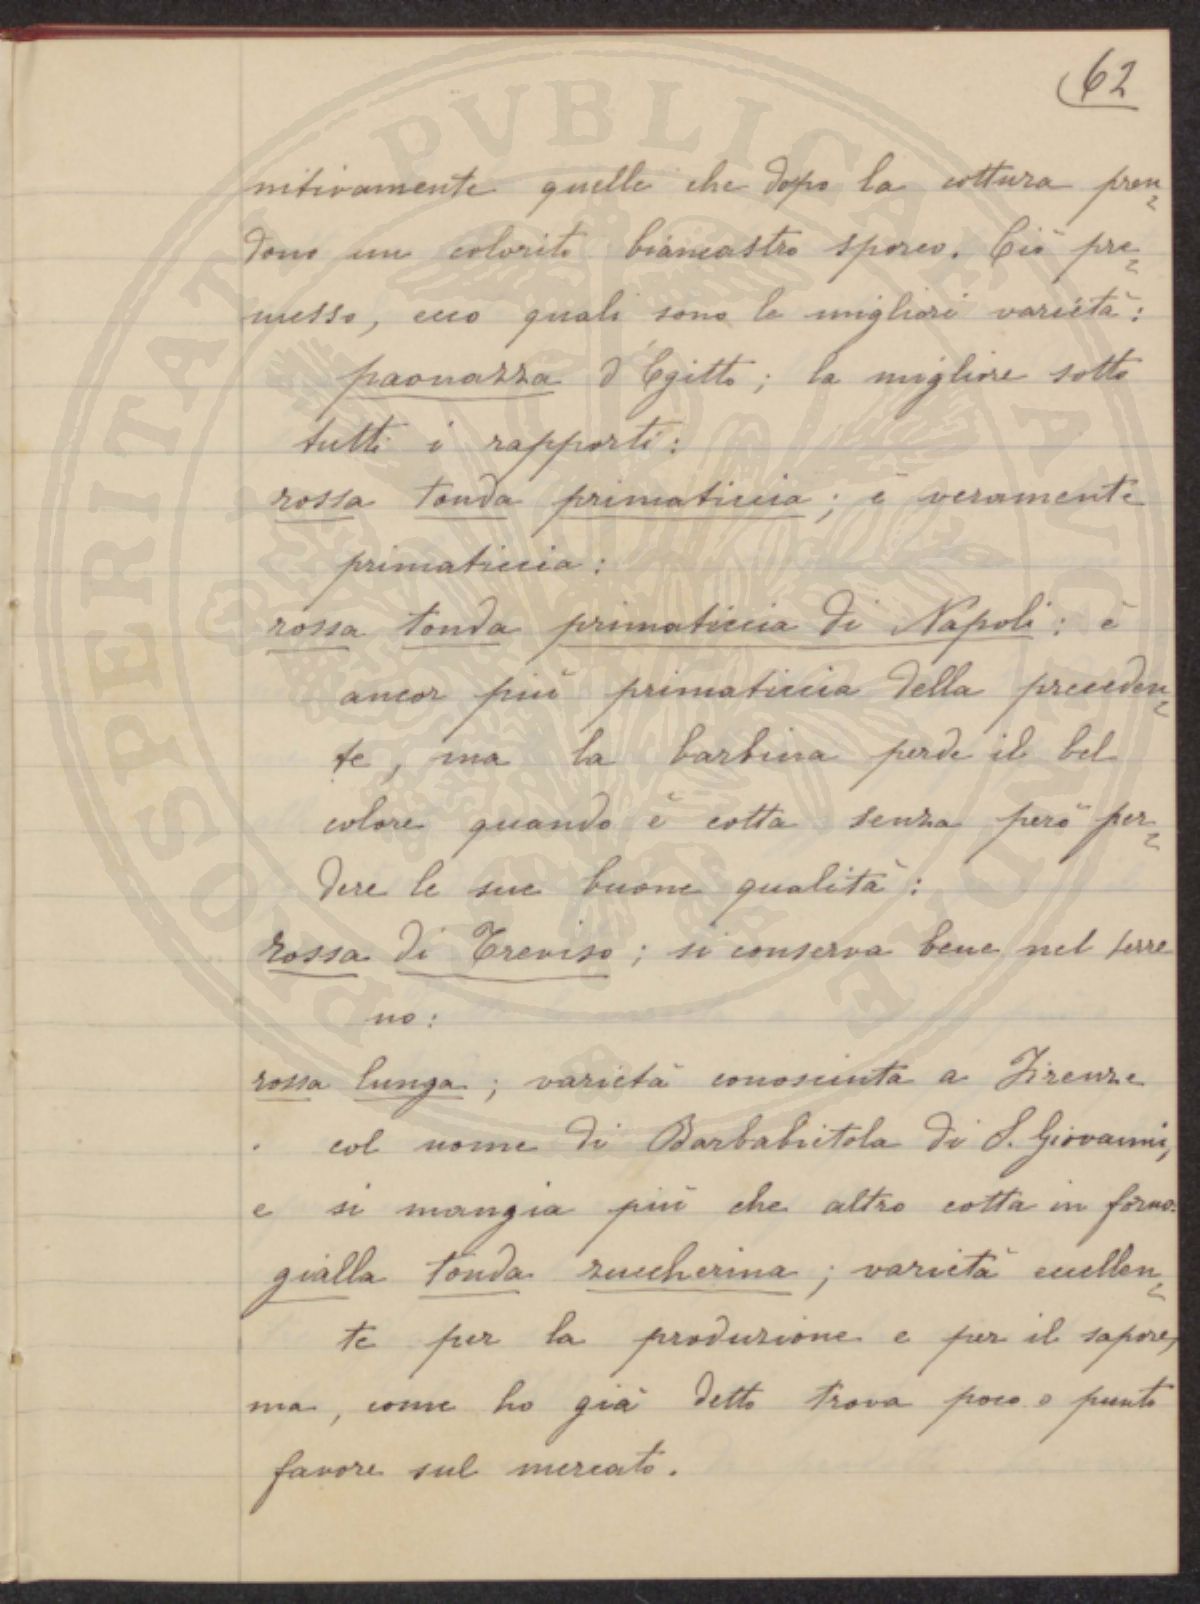 62
nitivamente quelle che dopo la cottura pren=
dono un colorito biancastro sporco. Ciò pre=
messo, ecco quali sono le migliori varietà:
paonazza d'Egitto; la migliore sotto
tutti i rapporti:
rossa tonda primaticcia; è veramente
primaticcia:
rossa tonda primaticcia di Napoli: è
ancor più primaticcia della preceden=
te, ma la barbina perde il bel
colore quando è cotta senza però per=
dere le sue buone qualità:
rossa di Treviso; si conserva bene nel terre
no:
rossa lunga; varietà conosciuta a Firenze
col nome di Barbabietola di S. Giovanni,
e si mangia più che altro cotta in forno.
gialla tonda zuccherina; varietà eccellen=
te per la produzione e per il sapore,
ma, come ho già detto trova poco o punto
favore sul mercato.
PROSPERITATI PVBLICAE AVGENDAE